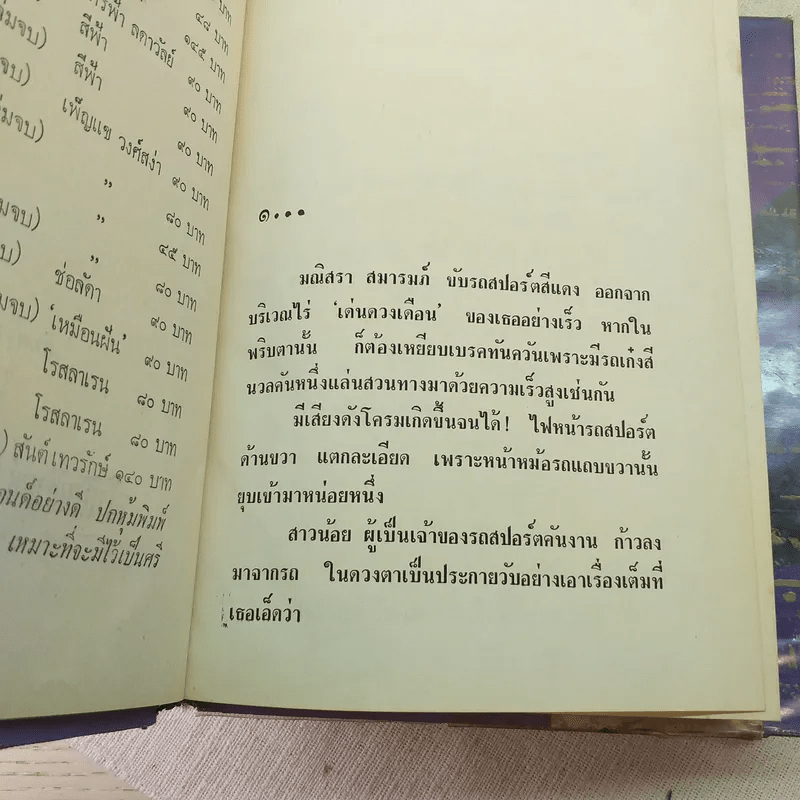 ลดาวัลย์ ๔๘ บาท
สีฟ้า ๑๔๕ บาท
สีฟ้า ๙๐ บาท
เพ็ญแข วงศ์สง่า ๙๐ บาท
๙๐ บาท
” ๙๐ บาท
” ๘๐ บาท
” ๔๕ บาท
ช่อลัดา ๘๐ บาท
'เหมือนฝัน' ๙๐ บาท
โรสลาเรน ๙๐ บาท
โรสลาเรน ๘๐ บาท
๘๐ บาท
สันต์ เทวรักษ์ ๑๔๐ บาท
อย่างดี ปกหุ้มพิมพ์
เหมาะที่จะมีไว้เป็นศรี
๑...
มณิสรา สมารมภ์ ขับรถสปอร์ตสีแดง ออกจาก
บริเวณไร่ 'เด่นดวงเดือน' ของเธออย่างเร็ว หากใน
พริบตานั้น ก็ต้องเหยียบเบรคทันควันเพราะมีรถเก๋งสี
นวลคันหนึ่งแล่นสวนทางมาด้วยความเร็วสูงเช่นกัน
มีเสียงดังโครมเกิดขึ้นจนได้! ไฟหน้ารถสปอร์ต
ด้านขวา แตกละเอียด เพราะหน้าหม้อรถแถบขวานั้น
ยุบเข้ามาหน่อยหนึ่ง
สาวน้อย ผู้เป็นเจ้าของรถสปอร์ตคันงาน ก้าวลง
มาจากรถ ในดวงตาเป็นประกายวับอย่างเอาเรื่องเต็มที่
เธอเอ็ดว่า